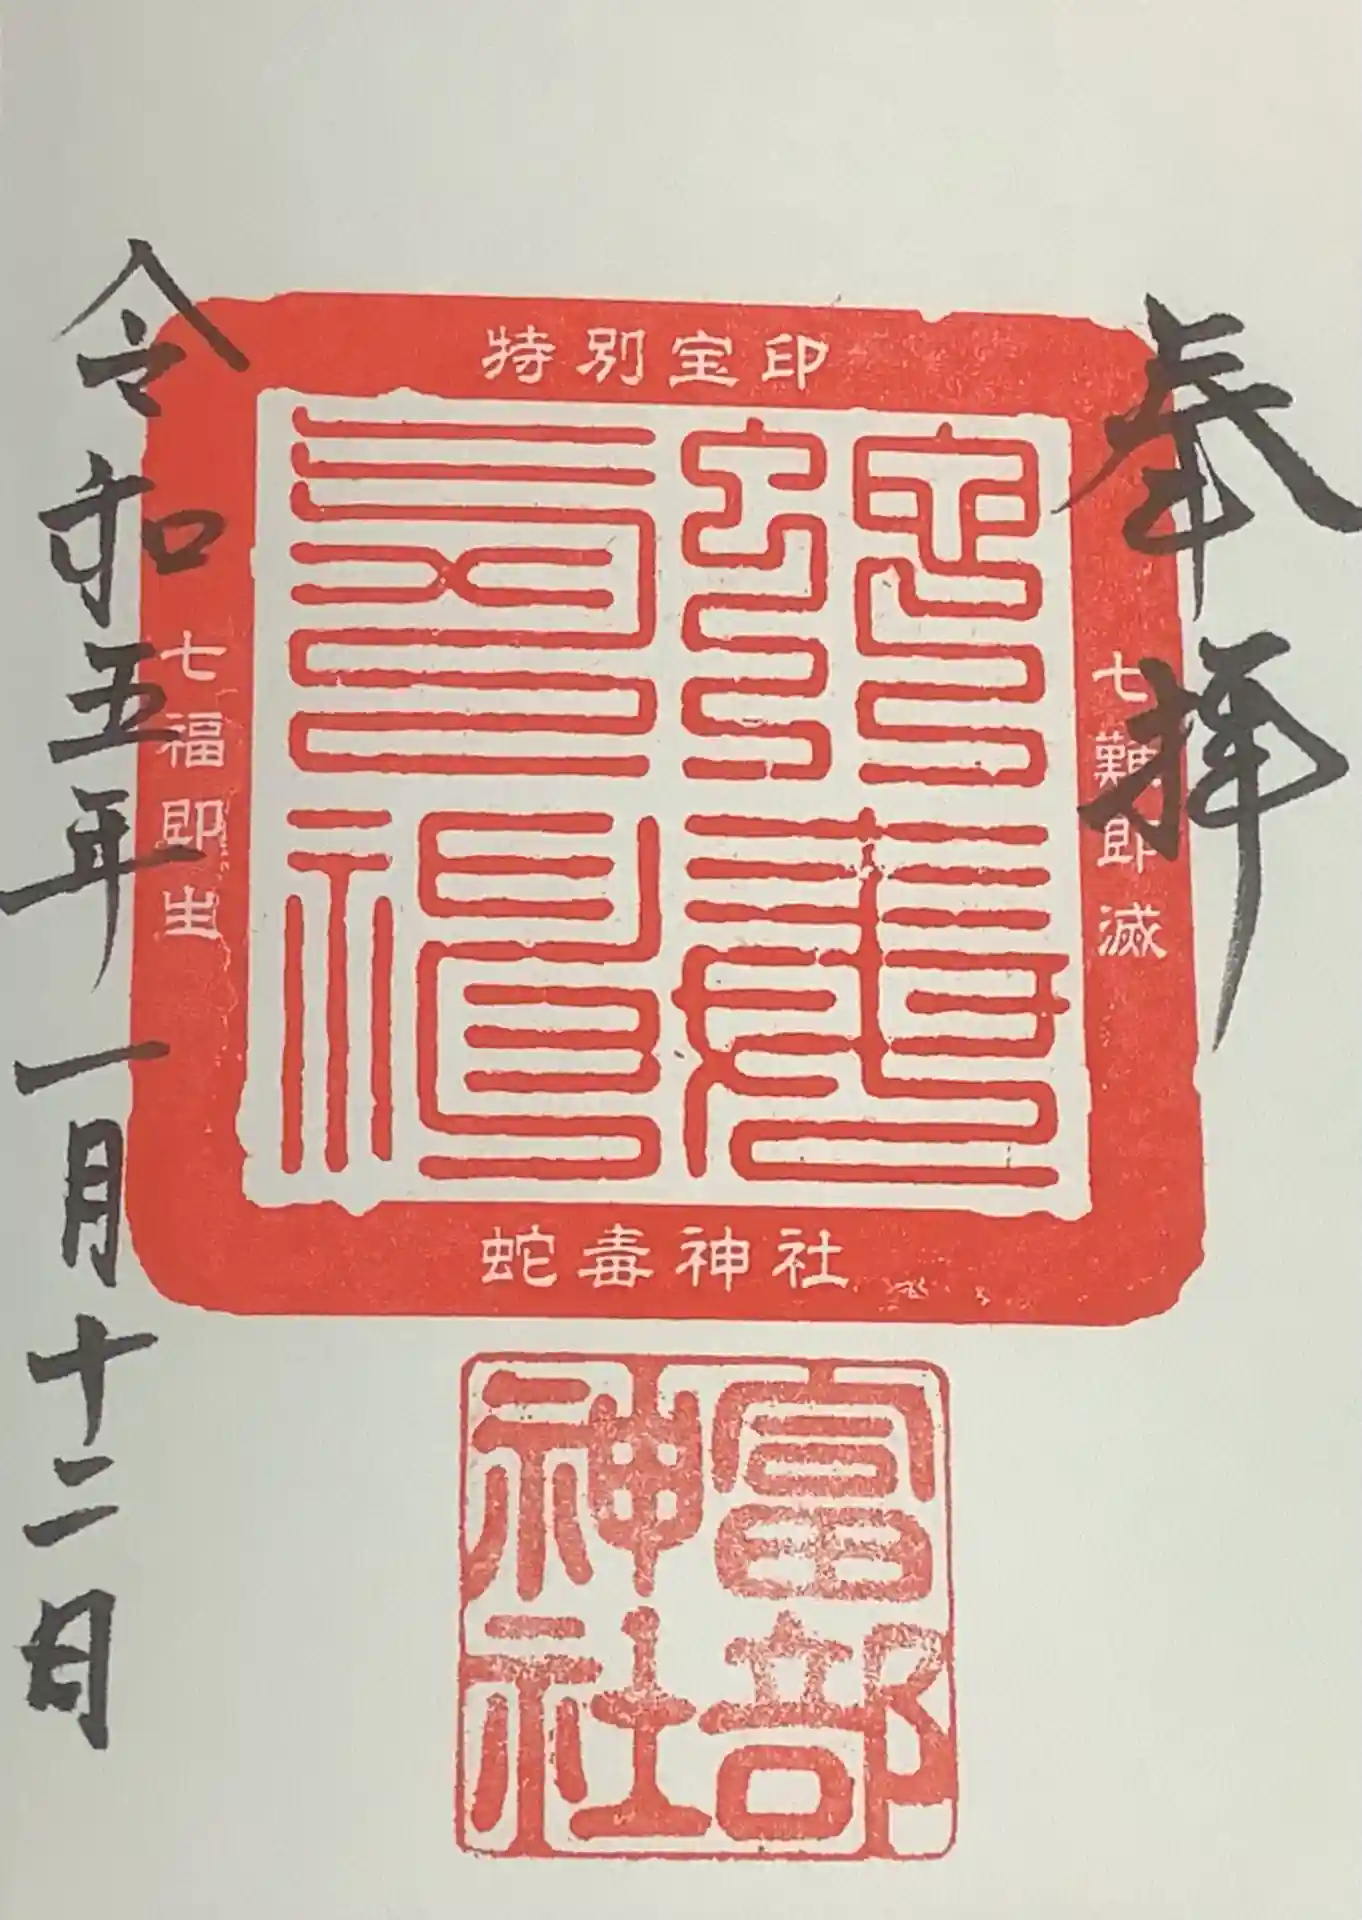 奉拝
特別宝印
七難即滅
七福即生
蛇毒神社
富部神社
令和五年一月十二日